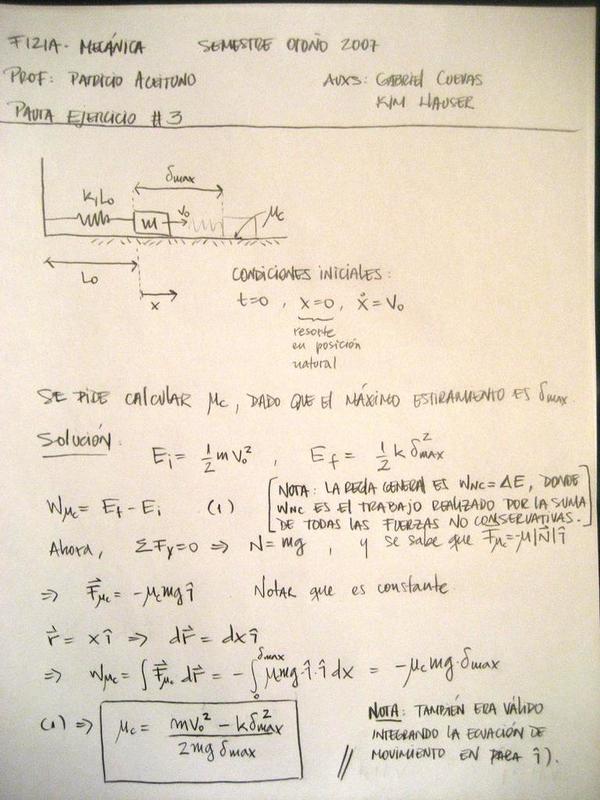 FI21A - MECÁNICA SEMESTRE OTOÑO 2007
PROF: PATRICIO ACEITUNO AUXS: GABRIEL CUEVAS
KIM HAUSER
PAUTA EJERCICIO #3
δmax
k, Lo
m
v₀
μc
Lo
x
CONDICIONES INICIALES:
t=0 , x=0 , ẋ=V₀
resorte
en posición
natural
SE PIDE CALCULAR μc, DADO QUE El MÁXIMO ESTIRAMIENTO ES δmax.
Solución:
Ei = 1/2 m v₀² , Ef = 1/2 k δ²max
[NOTA: LA REGLA GENERAL ES WNC = ΔE, DONDE
WNC ES EL TRABAJO REALIZADO POR LA SUMA
DE TODAS LAS FUERZAS NO CONSERVATIVAS.]
Wμc = Ef - Ei (1)
Ahora, ΣFy=0 => N=mg , y se sabe que F⃗μc=-μ|N⃗|î
=> F⃗μc = -μc mg î NOTAR que es constante
r⃗ = x î => dr⃗ = dx î
=> Wμc = ∫ F⃗μc dr⃗ = - ∫₀^δmax μc mg · î · î dx = -μc mg · δmax
(1) => μc = (mv₀² - kδ²max) / (2mg δmax)
NOTA: TAMBIÉN ERA VÁLIDO
INTEGRANDO LA ECUACIÓN DE
MOVIMIENTO EN PARA î).